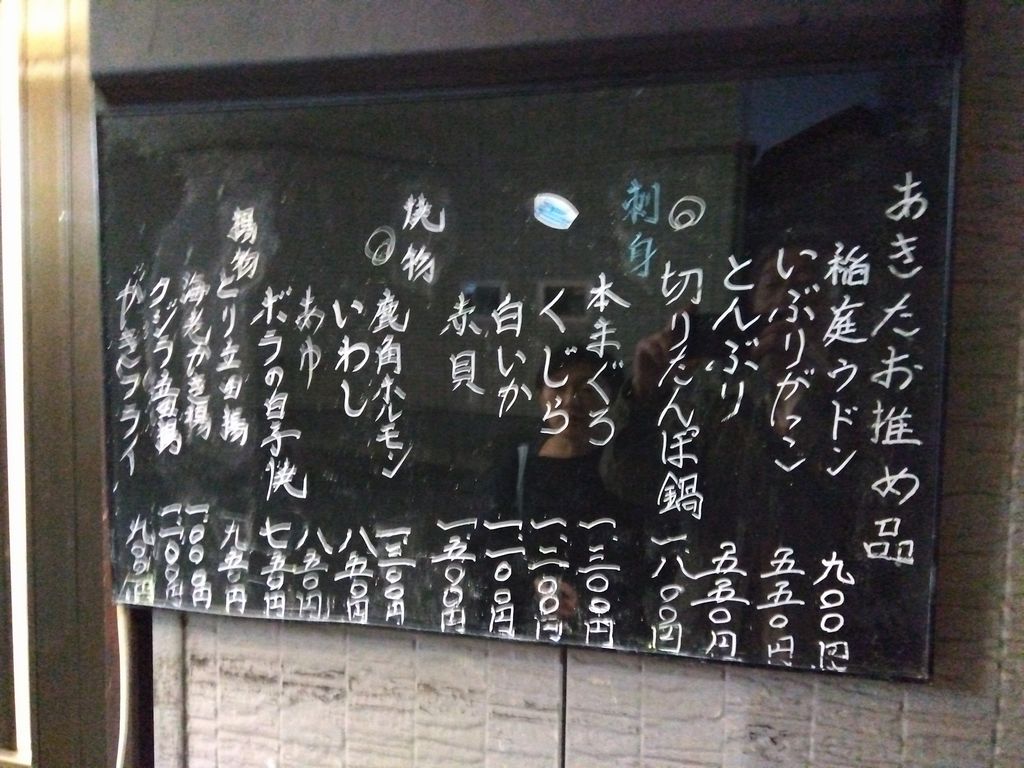 あきたお推め品
稲庭ウドン 九〇〇円
いぶりがっこ 五五〇円
とんぶり 五五〇円
切りたんぽ鍋 一、八〇〇円
刺身
本まぐろ 一、三〇〇円
くじら 一、二〇〇円
白いか 一、一〇〇円
赤貝 一、五〇〇円
焼物
鹿角ホルモン 一、三〇〇円
いわし 八五〇円
あゆ 八五〇円
ボラの白子焼 七五〇円
揚物
とり立田揚 九五〇円
海老かき揚 一、〇〇〇円
クジラ立田揚 一、二〇〇円
がきフライ 九〇〇円